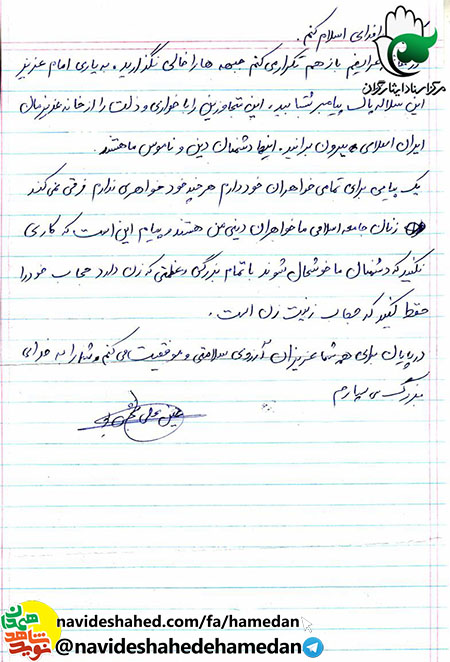 فدای اسلام کنم.
باز هم تکرار می کنم جبهه ها را خالی نگذارید و به یاری امام عزیز
این سلاله پاک پیامبر بشتابید. این متجاوزین را با خواری و ذلت را از خانه عزیزمان
ایران اسلامی بیرون برانید. اینها دشمنان دین و ناموس ما هستند.
یک پیامی برای تمامی خواهران خود دارم هر چند خود خواهری ندارم فرقی نمی کند
زنان جامعه اسلامی ما خواهران دینی من هستند و پیام این است که کاری
نکنید که دشمنان ما خوشحال شوند با تمام بزرگی و عظمتی که زن دارد حجاب خود را
حفظ کنید که حجاب زینت زن است.
در پایان برای همه شما عزیزان آرزوی سلامتی و موفقیت می کنم و شما را به خدای
بزرگ می سپارم
مرکز اسناد ایثارگران
نوید شاهد
همدان
navideshahed.com/fa/hamedan
@navideshahedehamedan